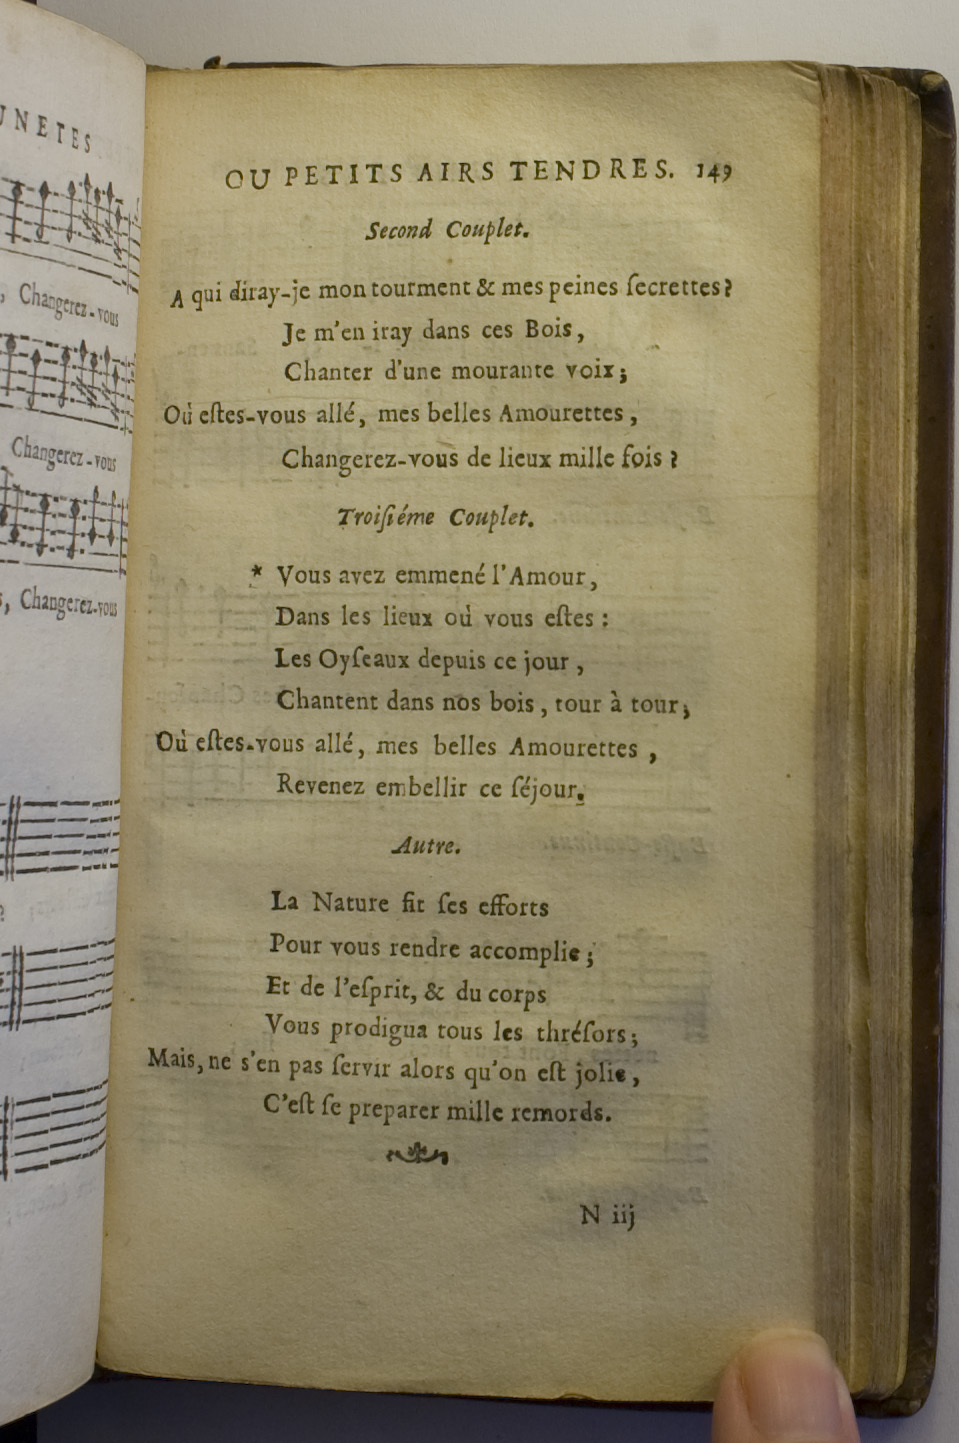 UNETES
, Changerez-vous
Changerez-vous
s, Changerez-vous
?
OU PETITS AIRS TENDRES. 149
Second Couplet.
A qui diray-je mon tourment & mes peines ſecrettes?
Je m'en iray dans ces Bois,
Chanter d'une mourante voix;
Où eſtes-vous allé, mes belles Amourettes,
Changerez-vous de lieux mille fois?
Troiſiéme Couplet.
* Vous avez emmené l'Amour,
Dans les lieux où vous eſtes:
Les Oyſeaux depuis ce jour,
Chantent dans nos bois, tour à tour;
Où eſtes-vous allé, mes belles Amourettes,
Revenez embellir ce ſéjour.
Autre.
La Nature fit ſes efforts
Pour vous rendre accomplie;
Et de l'eſprit, & du corps
Vous prodigua tous les thréſors;
Mais, ne s'en pas ſervir alors qu'on eſt jolie,
C'eſt ſe preparer mille remords.
N iij